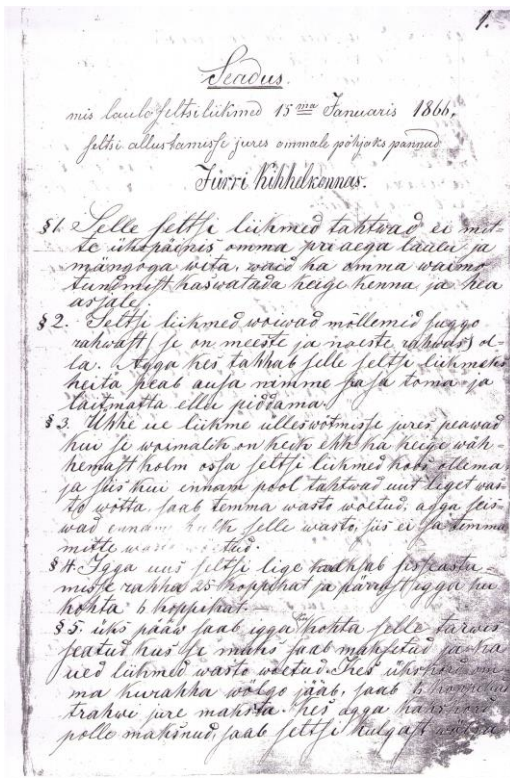 1.
Seadus.
mis laulo seltsi liikmed 15ma Januaris 1866.
seltsi allustamisse jures ommale põhjaks pannud
Jürri Kihhelkonnas.
§ 1. Selle seltsi liikmed tahtwad, ei mit-
te ükspäinis omma pri aega laulu ja
mängoga wita, waid ka omma waimo
tundmist kaswatada keige kenna ja hea
asjale.
§ 2. Seltsi liikmed woiwad mõllemist suggo
rahwast se on meeste ja naeste rahwas) ol-
la. Agga kes tahhab selle seltsi liikmeks
heita peab ausa nimme sasa toma ja
laitmatta ellu piddama.
§ 3. Uhhe ue liikme ülleswõtmisse jures peawad
kui se woimalik on keik ehk ka keige wäh-
hemast kolm ossa seltsi liikmed koos ollema
ja siis kui ennam pool tahtwad uut liget was-
to wotta, saab temma wasto woetud, agga seis-
wad ennam hulk selle wasto, siis ei sa temma
mitte wasto woetud.
§ 4. Igga uus seltsi lige maksab sisseasta-
misse rahha 25 koppikat ja pärrast igga ku
kohta 6 koppikat.
§ 5. üks pääw saab igga ku kohta selle tarwis
seatud kus se maks saab maksetud ja ka
ued liikmed wasto woetud. Kes ükskord om-
ma kurahha wolgo jääb, saab 6 koppikat
trahwi jure maksta. Kes agga kaks kord
polle maksnud, saab seltsi hulgast